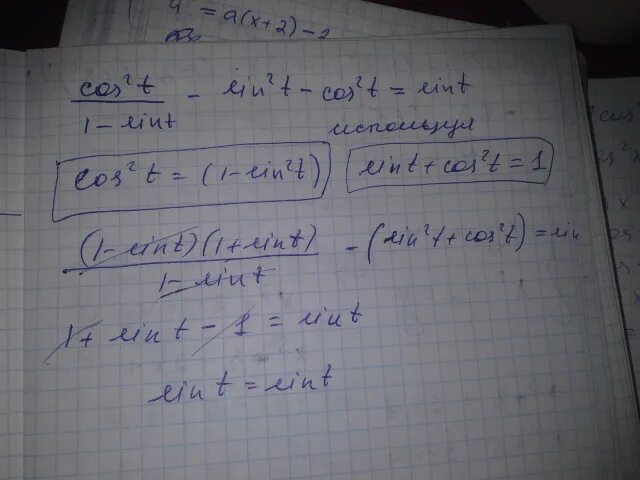 = a(x+2) -
cos²t / 1 - sin t - sin²t - cos²t = sin t
используя
cos²t = (1 - sin²t) sin t + cos²t = 1
(1 - sin t)(1 + sin t) / 1 - sin t - (sin²t + cos²t) = sin
1 + sin t - 1 = sin t
sin t = sin t